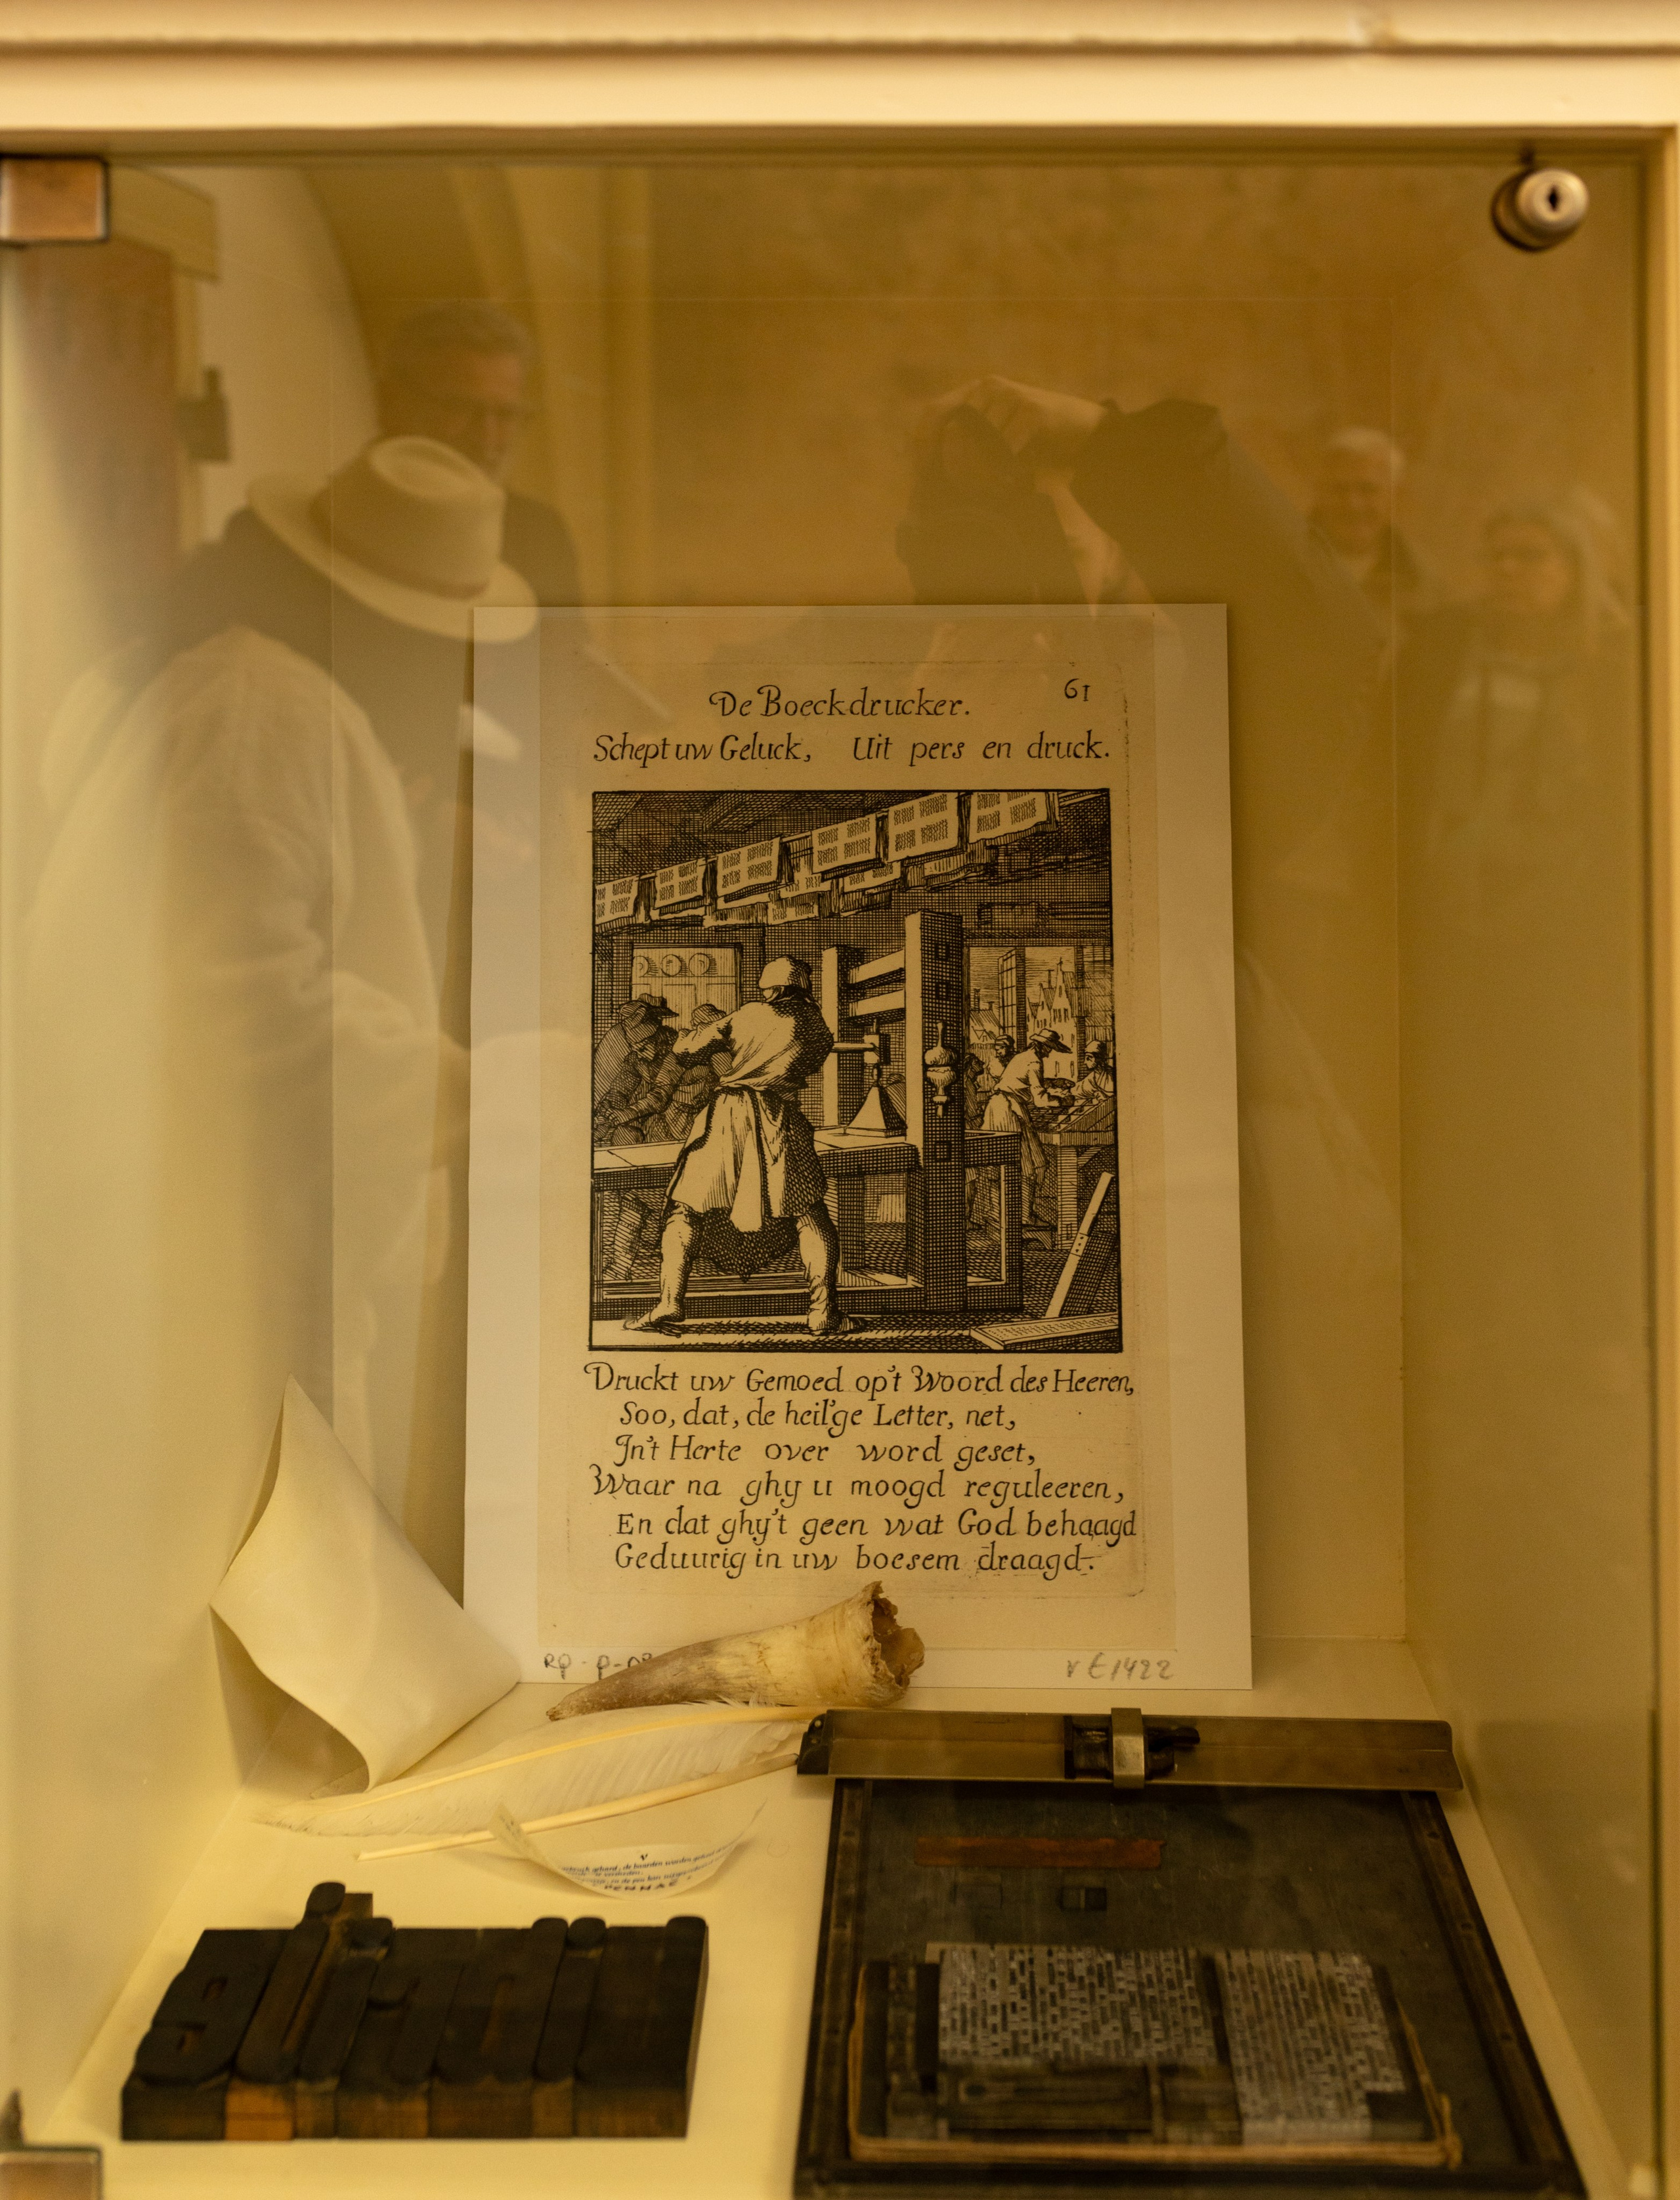 De Boeckdrucker. 61
Schept uw Geluck, Uit pers en druck.
Druckt uw Gemoed op't Woord des Heeren,
Soo, dat, de heil'ge Letter, net,
In't Herte over word geset,
Waar na ghy u moogd reguleeren,
En dat ghy't geen wat God behaagd
Geduurig in uw boesem draagd.
RP-P-
v E 1422
PENNAE